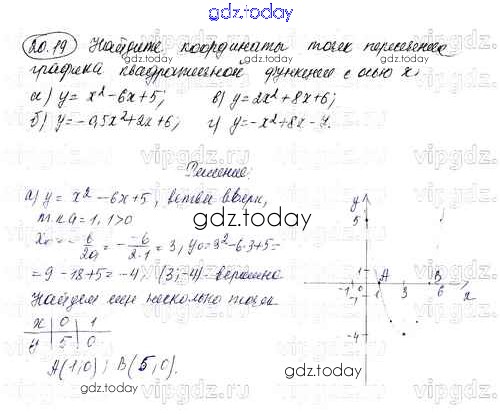 gdz.today
20.19 Найдите координаты точек пересечения
графика квадратичной функции с осью x:
а) y = x² - 6x + 5; в) y = 2x² + 8x + 6;
б) y = -0,5x² + 2x + 6; г) y = -x² + 8x - 7.
Решение:
а) y = x² - 6x + 5, ветви вверх,
т.к. a = 1, 1 > 0
gdz.today
x₀ = -b/2a = - -6/2·1 = 3, y₀ = 3² - 6·3 + 5 =
= 9 - 18 + 5 = -4; (3; -4) - вершина.
Найдем еще несколько точек
x 0 1
y 5 0
A(1; 0); B(5; 0).
gdz.today
y
5
1
A
B
-1 0 1 3 6 x
-1
-4
vipgdz.ru